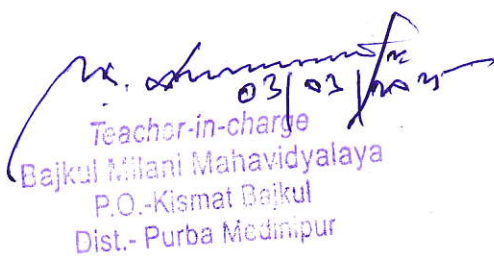 03/03/2025
Teacher-in-charge
Bajkul Milani Mahavidyalaya
P.O.-Kismat Bajkul
Dist.- Purba Medinipur